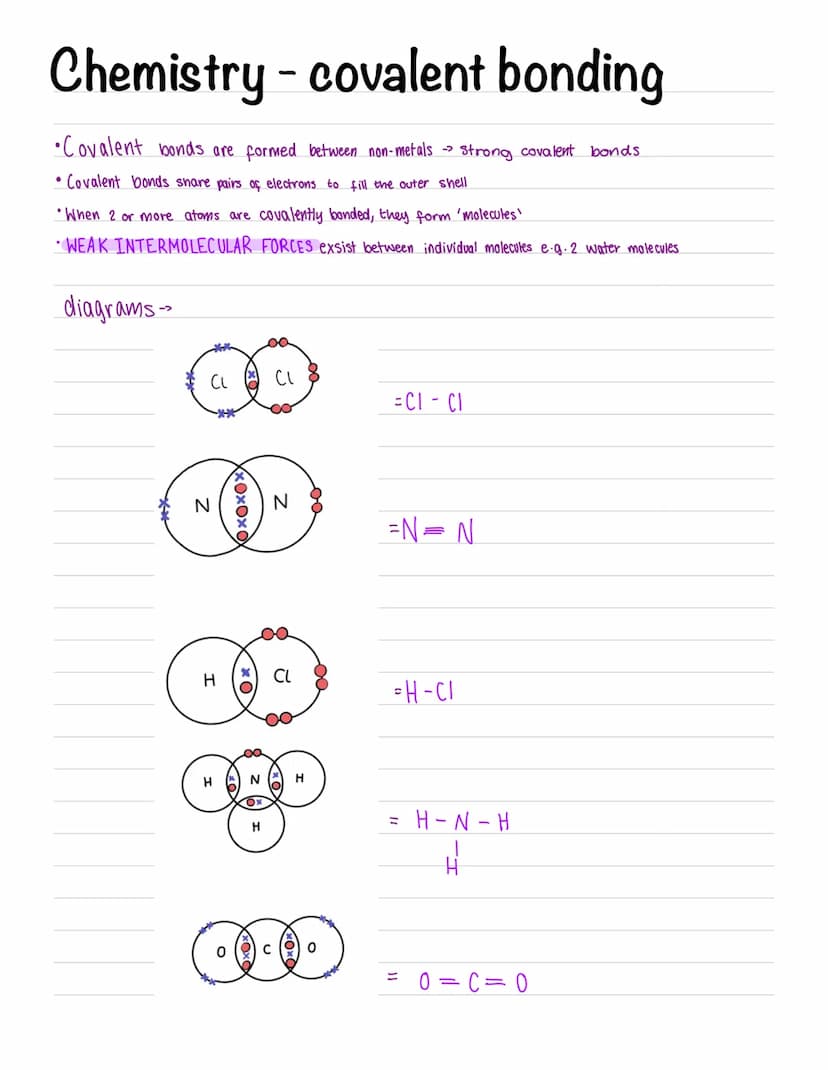 Chemistry - covalent bonding
•Covalent bonds are formed between non-metals → strong covalent bonds
•Covalent bonds share pairs of electrons to fill the outer shell
•When 2 or more atoms are covalently bonded, they form 'molecules'
•WEAK INTERMOLECULAR FORCES exsist between individual molecules e.g. 2 water molecules
diagrams→
Cl Cl
=Cl - Cl
N N
=N≡N
H Cl
=H-Cl
H N H
H
= H-N-H
|
H
O C O
= O=C=O